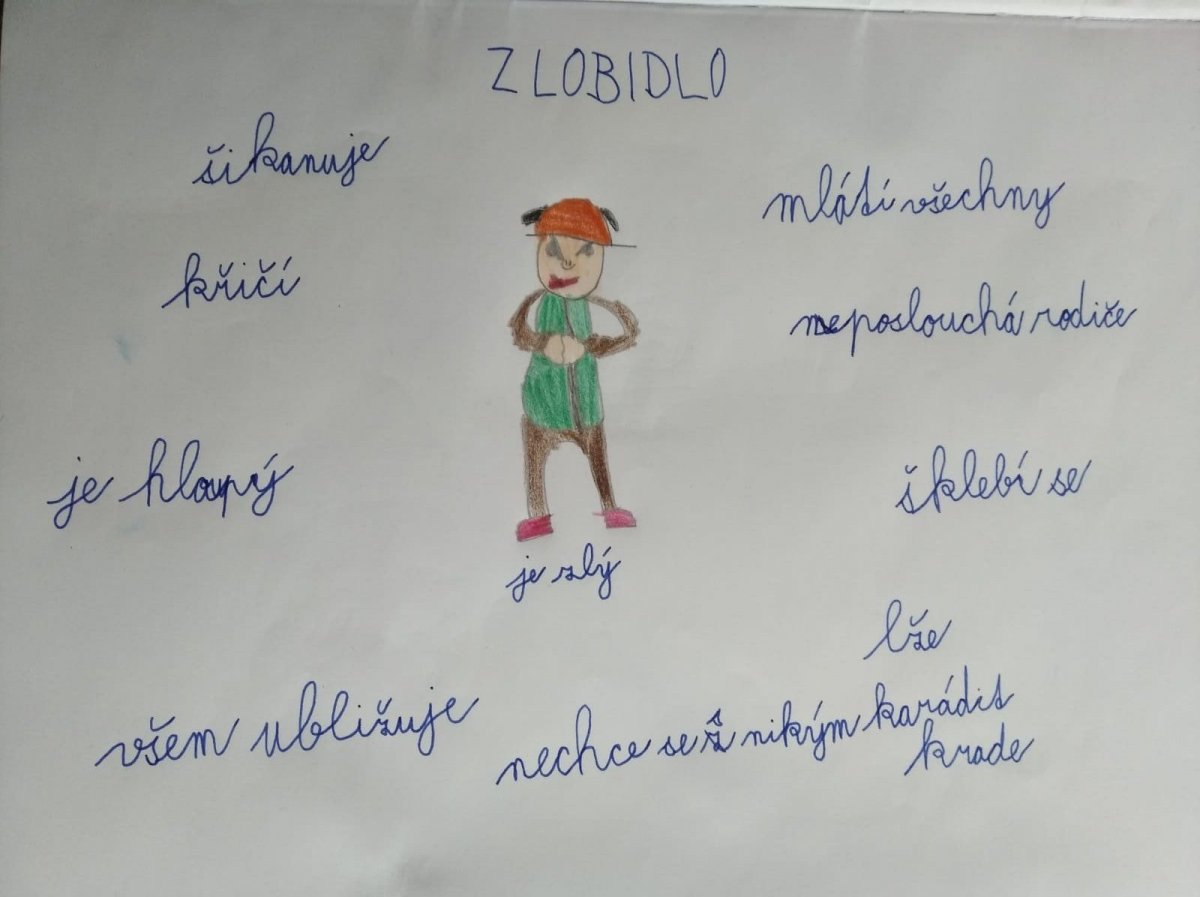 ZLOBIDLO
šikanuje
mlátí všechny
křičí
neposlouchá rodiče
je hloupý
šklebí se
je zlý
lže
všem ubližuje
nechce se s nikým karádit
krade